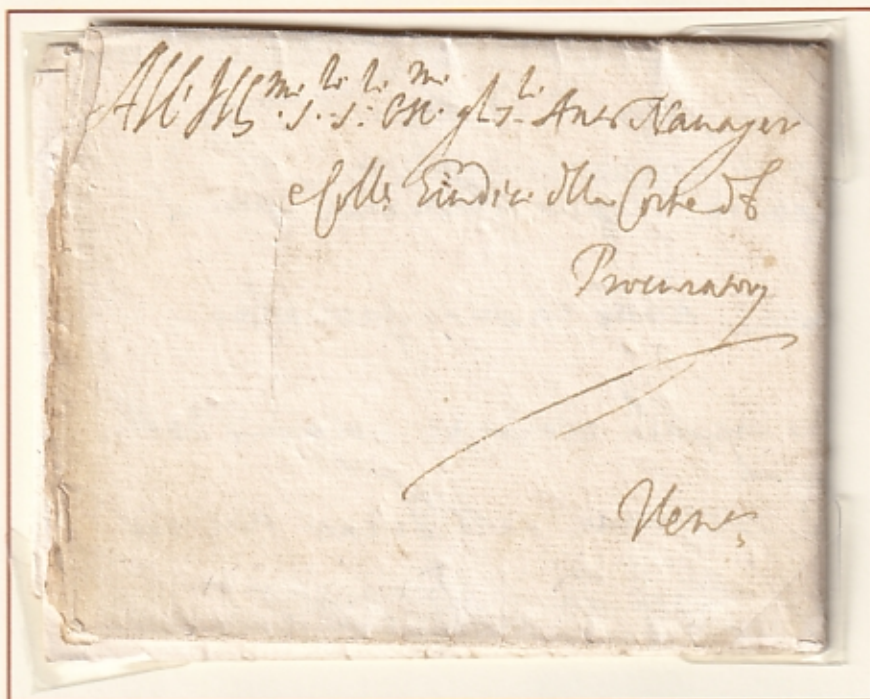 Alli Ill.mi s.ri s.ri Oss.mi gli s.ri Ant.o Navager
e Coll.i Giudici della Corte d
Procuratori
Ven.a